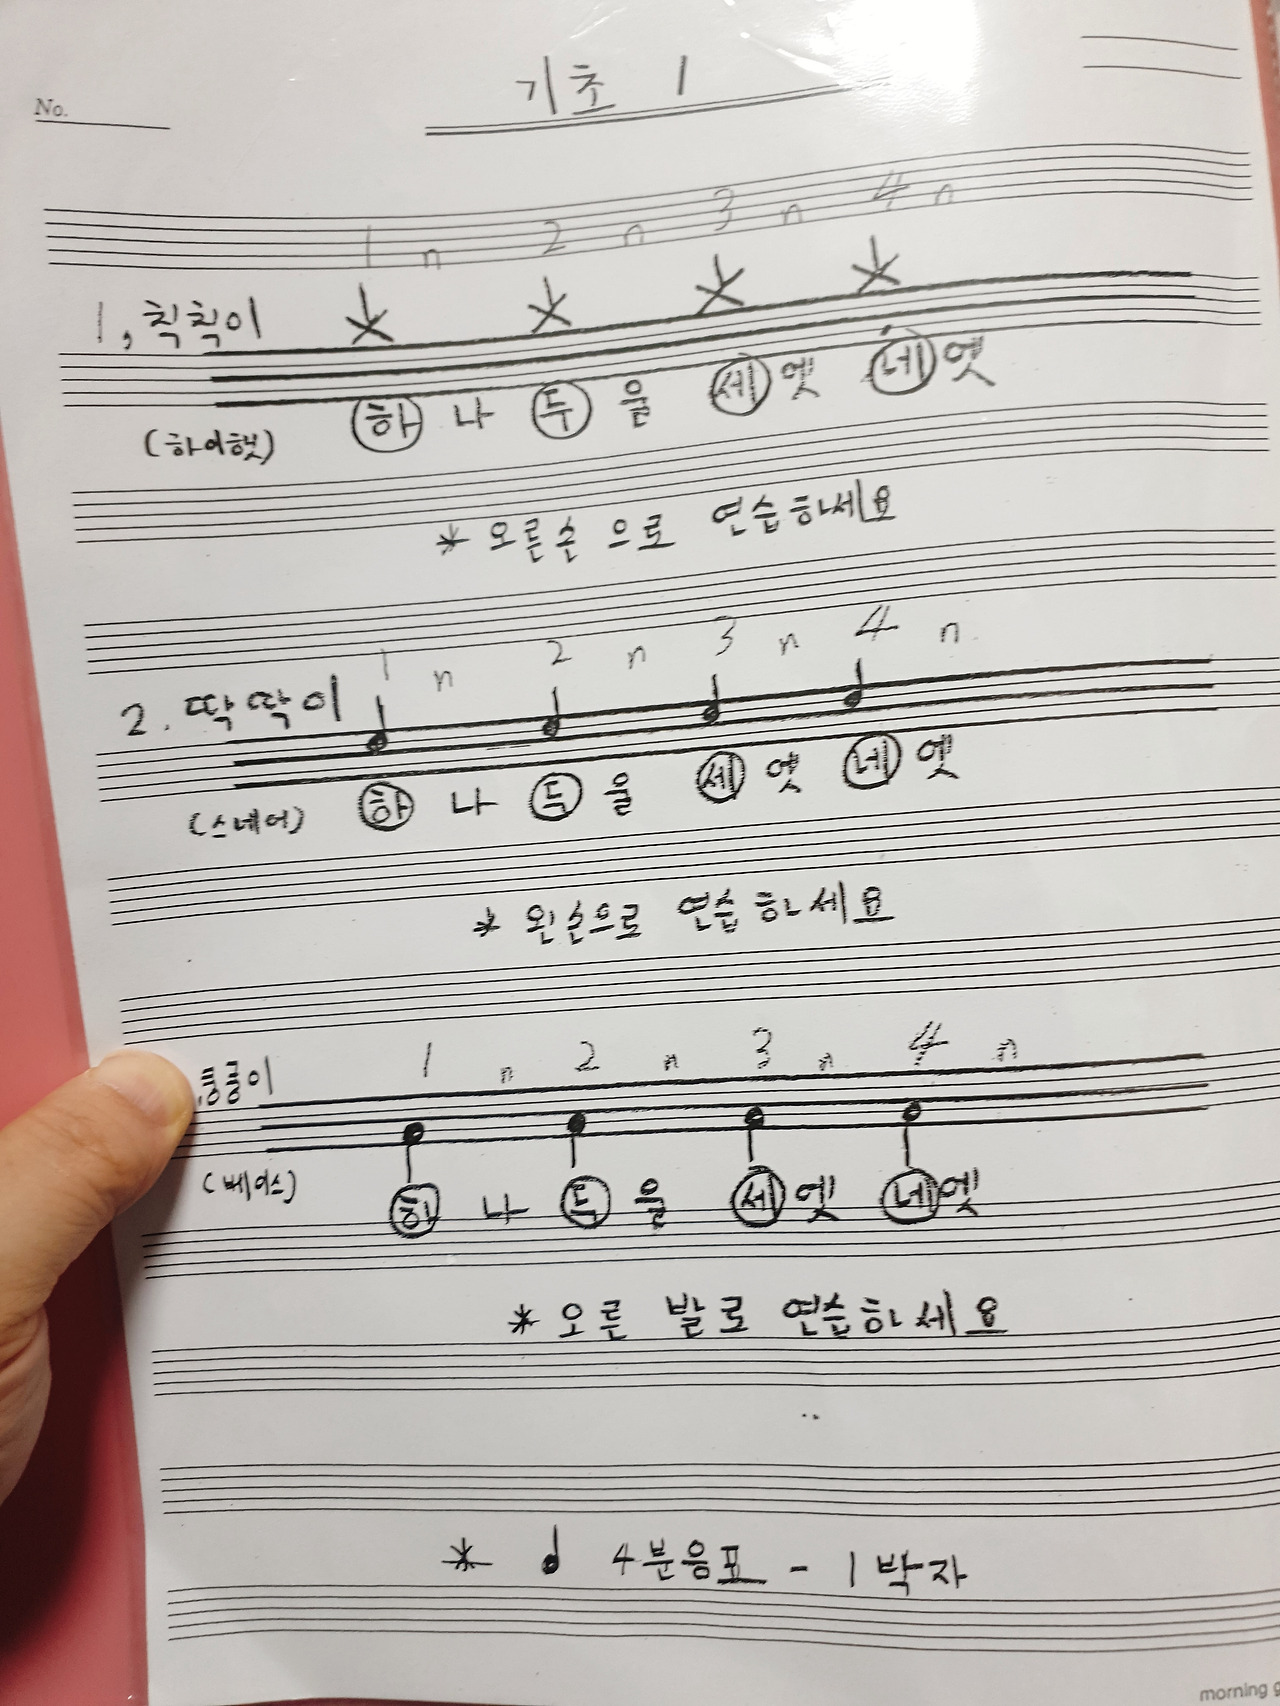 기초 1
No.
1 n 2 n 3 n 4 n
1, 칙칙이
하 나 두 울 세 엣 네 엣
(하이햇)
* 오른손 으로 연습하세요
1 n 2 n 3 n 4 n
2. 딱딱이
하 나 두 울 세 엣 네 엣
(스네어)
* 왼손으로 연습하세요
1 n 2 n 3 n 4 n
쿵쿵이
(베이스)
하 나 두 울 세 엣 네 엣
* 오른 발로 연습하세요
* ♩ 4분음표 - 1박자
morning